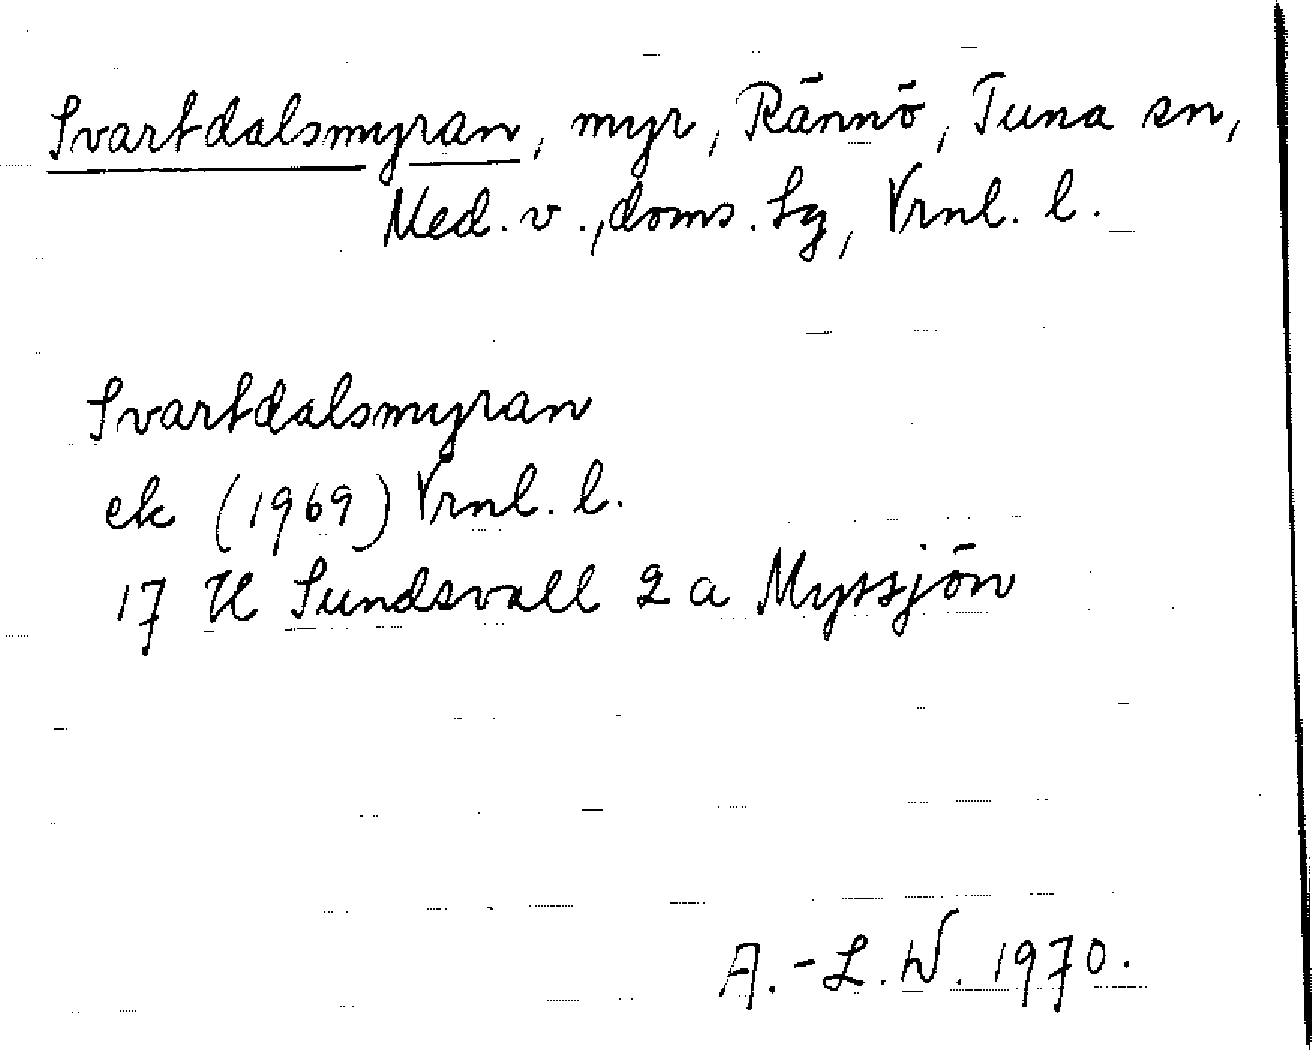 Svartdalsmyran, myr, Rännö, Tuna sn,
Med. v., doms. Lg, Vrnl. l.
Svartdalsmyran
ek (1969) Vrnl. l.
17 H Sundsvall 2 a Myssjön
A.-L. W. 1970.